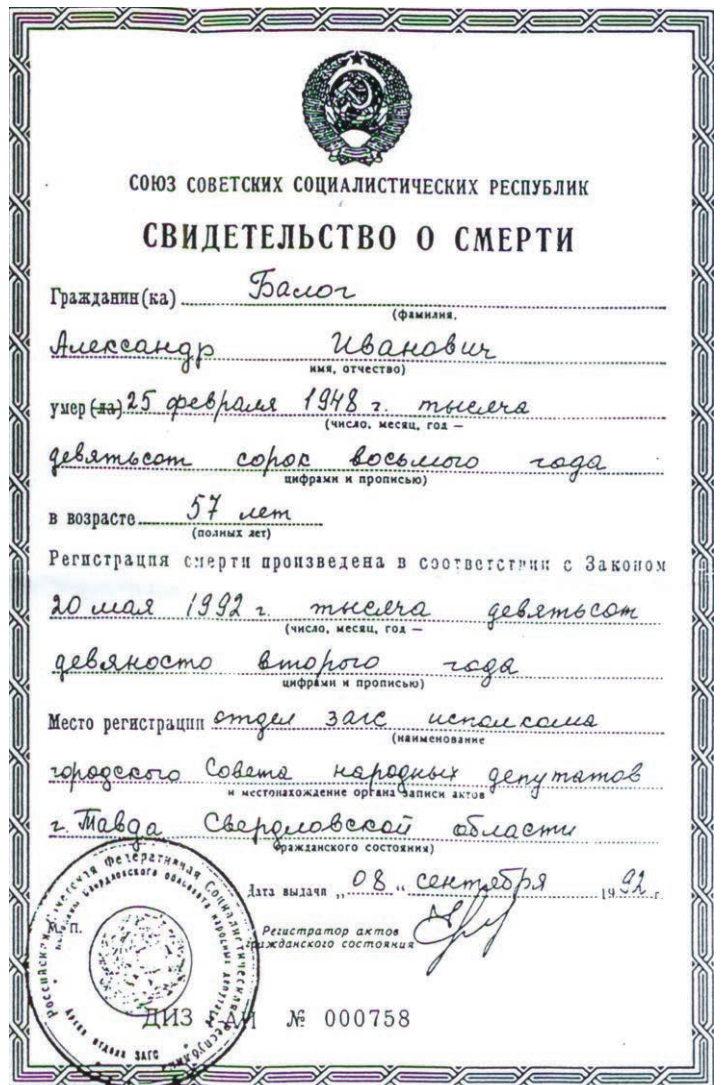 СОЮЗ СОВЕТСКИХ СОЦИАЛИСТИЧЕСКИХ РЕСПУБЛИК
СВИДЕТЕЛЬСТВО О СМЕРТИ
Гражданин(ка) Балог
(фамилия,
Александр Иванович
имя, отчество)
умер (ла) 25 февраля 1948 г. тысяча
(число, месяц, год —
девятьсот сорок восьмого года
цифрами и прописью)
в возрасте 57 лет
(полных лет)
Регистрация смерти произведена в соответствии с Законом
20 мая 1992 г. тысяча девятьсот
(число, месяц, год —
девяносто второго года
цифрами и прописью)
Место регистрации отдел загс исполкома
(наименование
городского Совета народных депутатов
и местонахождение органа записи актов
г. Тавда Свердловской области
гражданского состояния)
Дата выдачи „08“ сентября 1992 г.
М. П.
Регистратор актов
гражданского состояния
Российская Советская Федеративная Социалистическая Республика
Свердловского областного народных депутатов
отдела ЗАГС
ДИЗ АИ № 000758